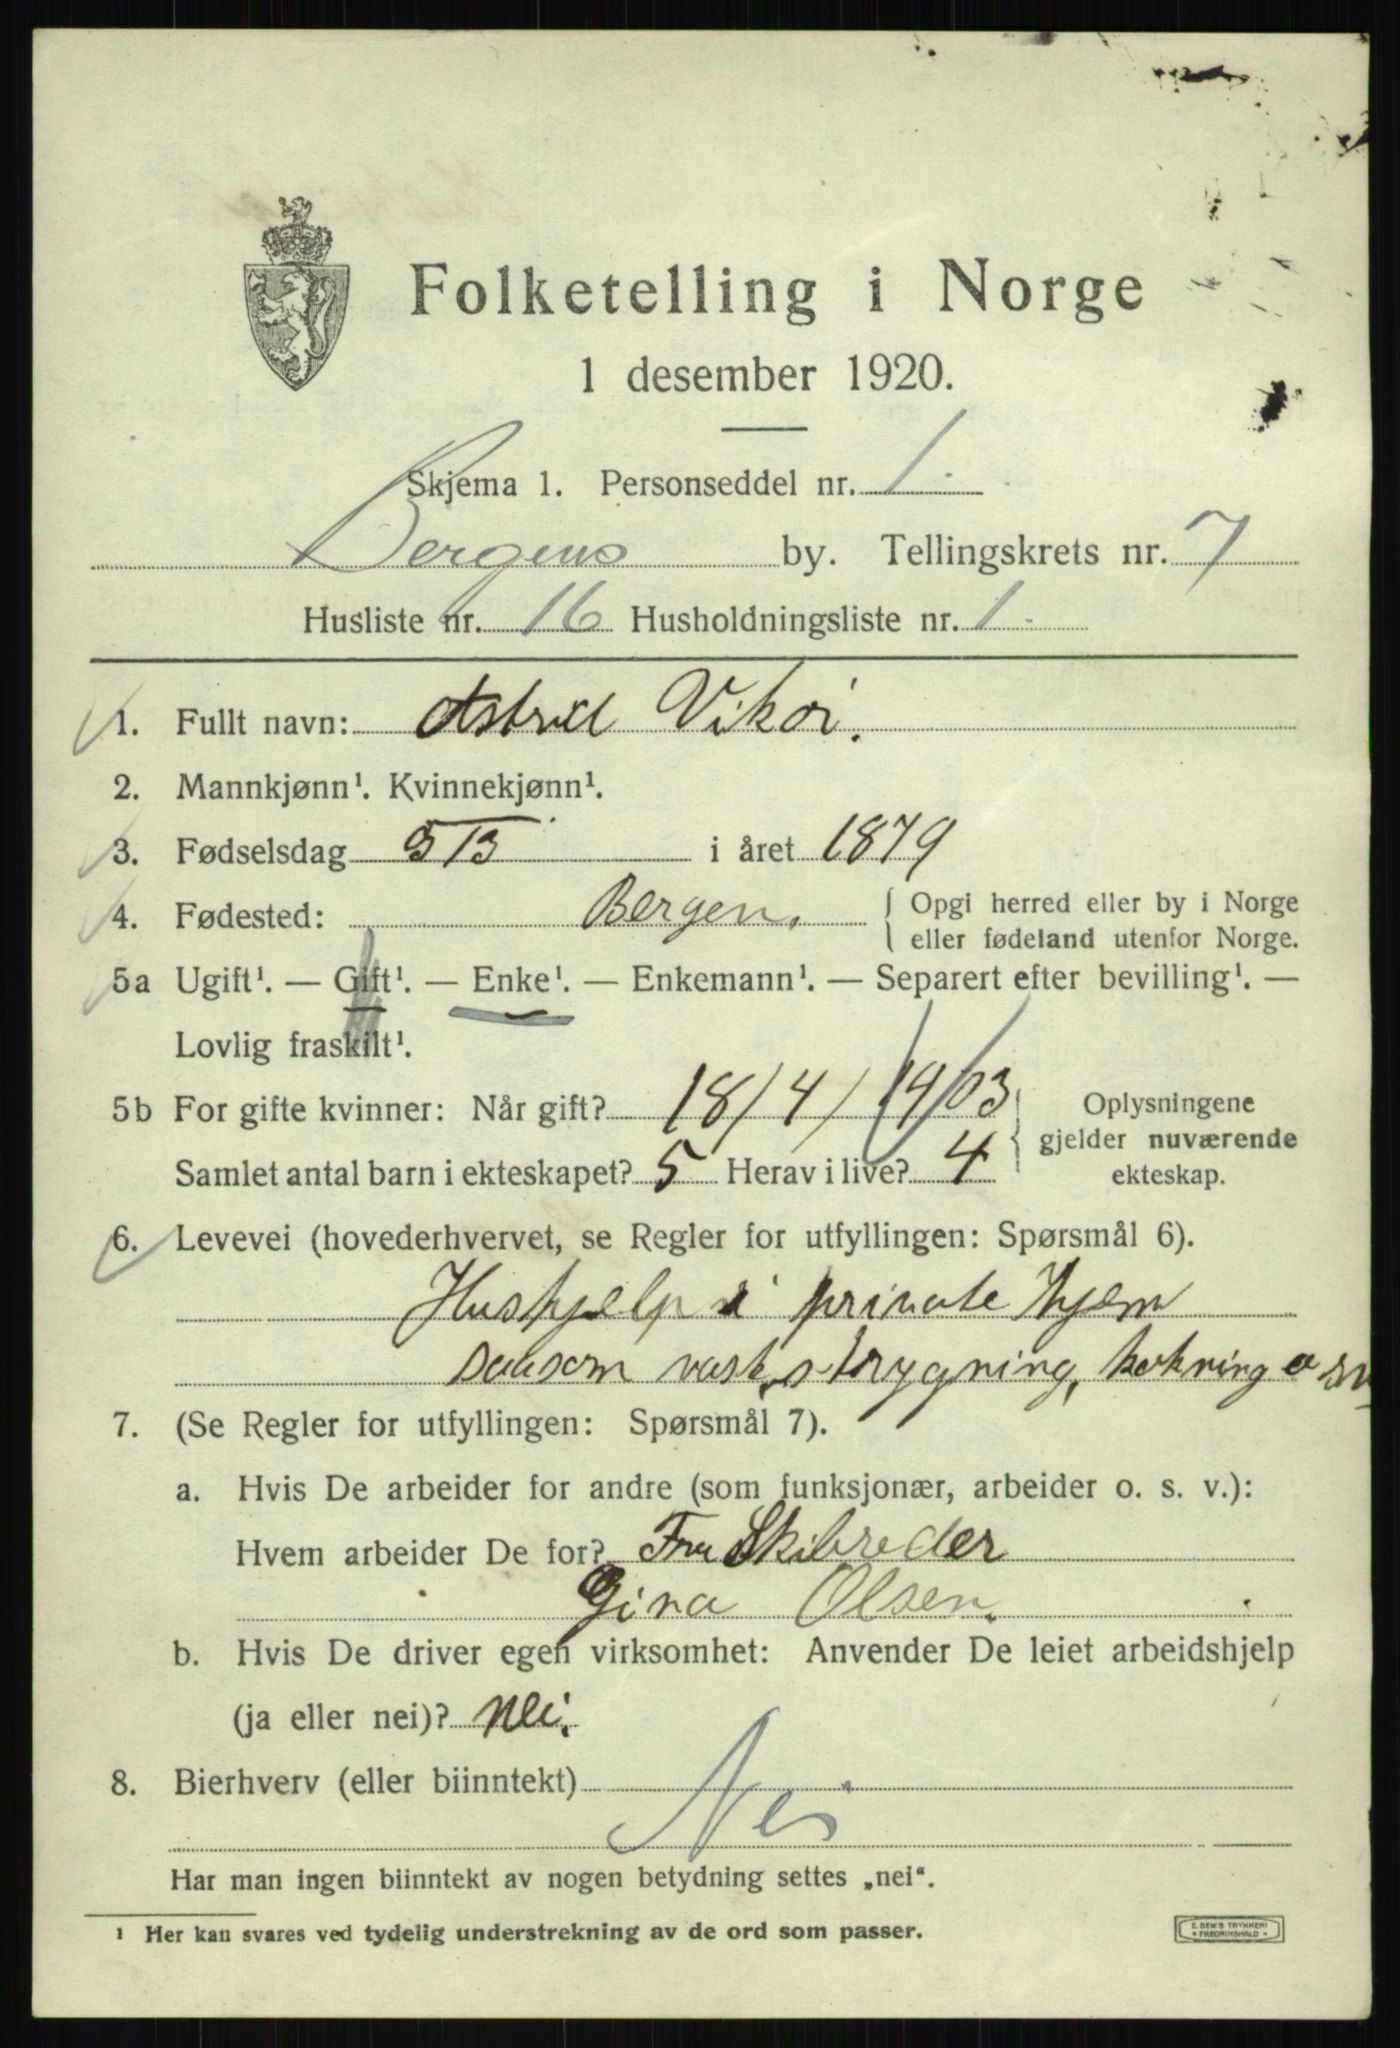 Folketelling i Norge
1 desember 1920.
Skjema 1. Personseddel nr. 1.
Bergens by. Tellingskrets nr. 7
Husliste nr. 16 Husholdningsliste nr. 1.
1. Fullt navn: Astrid Vikør.
2. Mannkjønn¹. Kvinnekjønn¹.
3. Fødselsdag 5/3 i året 1879
4. Fødested: Bergen. { Opgi herred eller by i Norge
eller fødeland utenfor Norge.
5a Ugift¹. — Gift¹. — Enke¹. — Enkemann¹. — Separert efter bevilling¹. —
Lovlig fraskilt¹.
5b For gifte kvinner: Når gift? 18/4/1903
Samlet antal barn i ekteskapet? 5 Herav i live? 4
} Oplysningene
gjelder nuværende
ekteskap.
6. Levevei (hovederhvervet, se Regler for utfyllingen: Spørsmål 6).
Hushjelp i private hjem
saasom vask, strygning, kokning o sv
7. (Se Regler for utfyllingen: Spørsmål 7).
a. Hvis De arbeider for andre (som funksjonær, arbeider o. s. v.):
Hvem arbeider De for? Fru Skibreder
Gina Olsen.
b. Hvis De driver egen virksomhet: Anvender De leiet arbeidshjelp
(ja eller nei)? nei.
8. Bierhverv (eller biinntekt) Nei
Har man ingen biinntekt av nogen betydning settes „nei“.
¹ Her kan svares ved tydelig understrekning av de ord som passer.
E. SEM'S TRYKKERI
• FREDRIKSHALD •